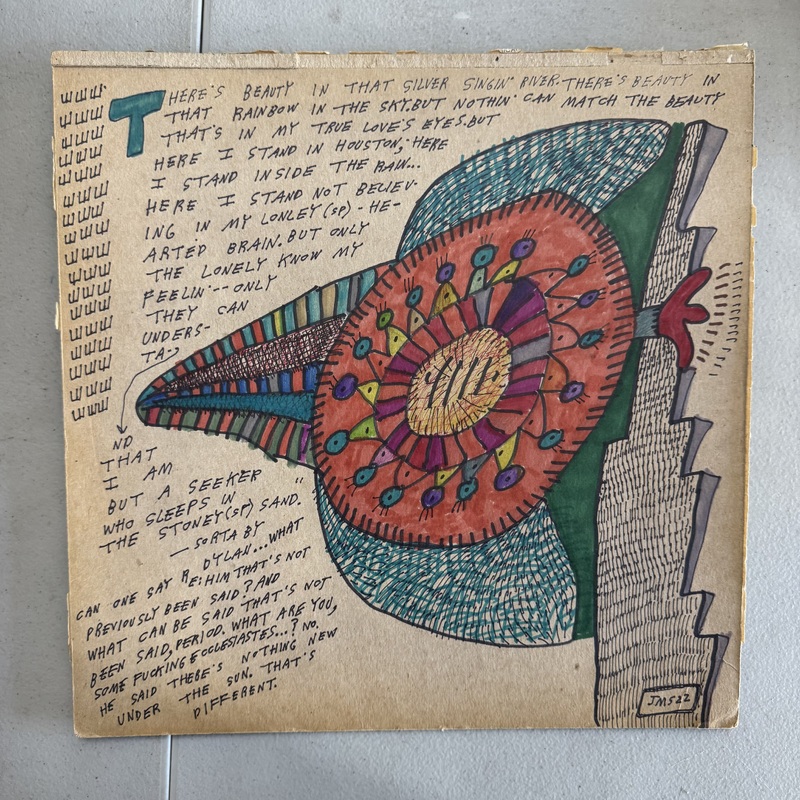 THERE'S BEAUTY IN THAT SILVER SINGIN' RIVER. THERE'S BEAUTY IN
THAT RAINBOW IN THE SKY. BUT NOTHIN' CAN MATCH THE BEAUTY
THAT'S IN MY TRUE LOVE'S EYES. BUT
HERE I STAND IN HOUSTON, HERE
I STAND INSIDE THE RAIN...
HERE I STAND NOT BELIEV-
ING IN MY LONLEY (SP) - HE-
ARTED BRAIN. BUT ONLY
THE LONELY KNOW MY
FEELIN'-- ONLY
THEY CAN
UNDERS-
TA-
ND
THAT
I AM
BUT A SEEKER
WHO SLEEPS IN
THE STONEY (SP) SAND."
— SORTA BY
DYLAN... WHAT
CAN ONE SAY RE: HIM THAT'S NOT
PREVIOUSLY BEEN SAID? AND
WHAT CAN BE SAID THAT'S NOT
BEEN SAID, PERIOD. WHAT ARE YOU,
SOME FUCKING ECCLESIASTES...? NO.
HE SAID THERE'S NOTHING NEW
UNDER THE SUN. THAT'S
DIFFERENT.
JMS22